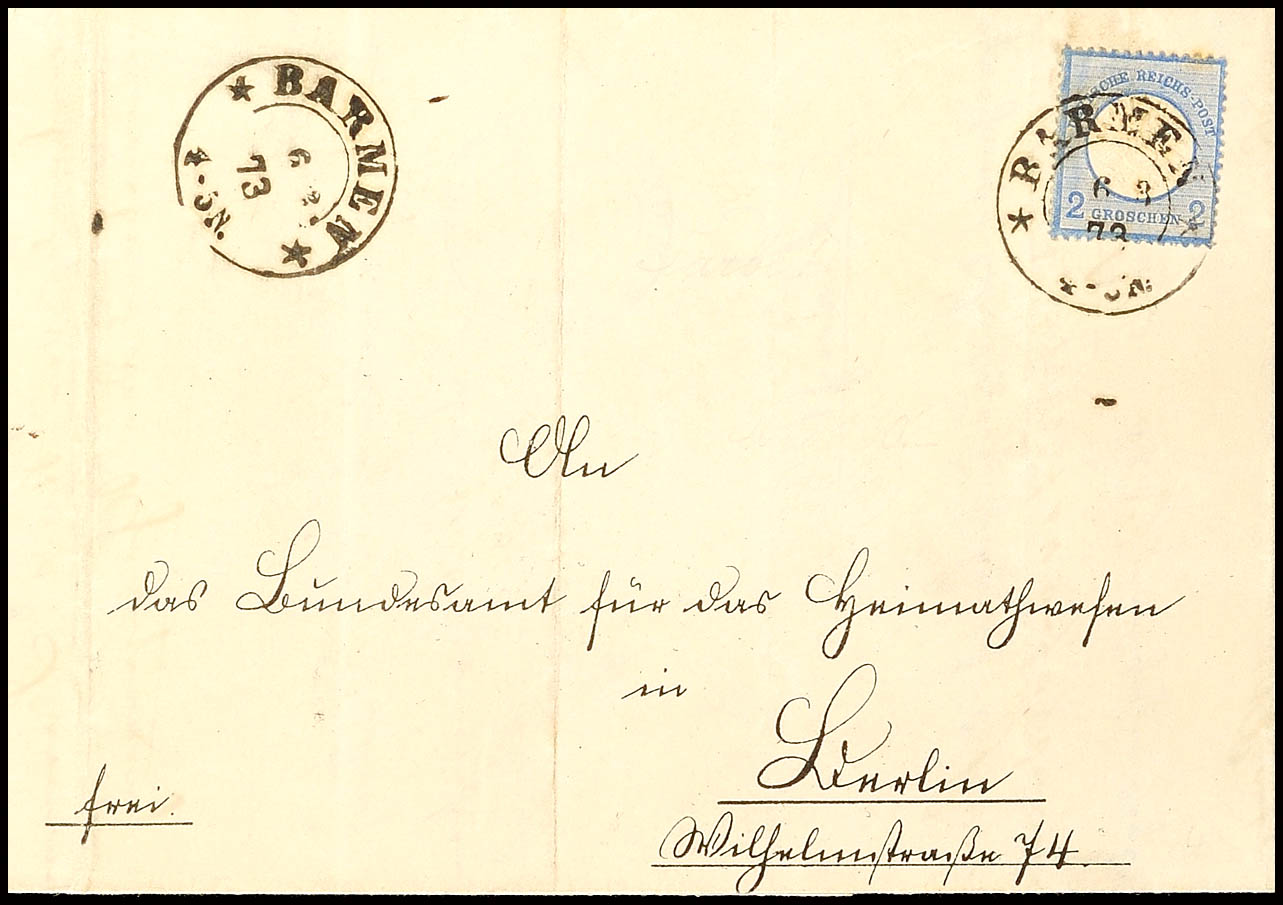 ★ BARMEN ★
6 3
73
4-5N.
DEUTSCHE REICHS-POST
2 GROSCHEN 2
★ BARMEN ★
6 3
73
4-5N.
An
das Bundesamt für das Heimathwesen
in
Berlin
frei.
Wilhelmstraße 74